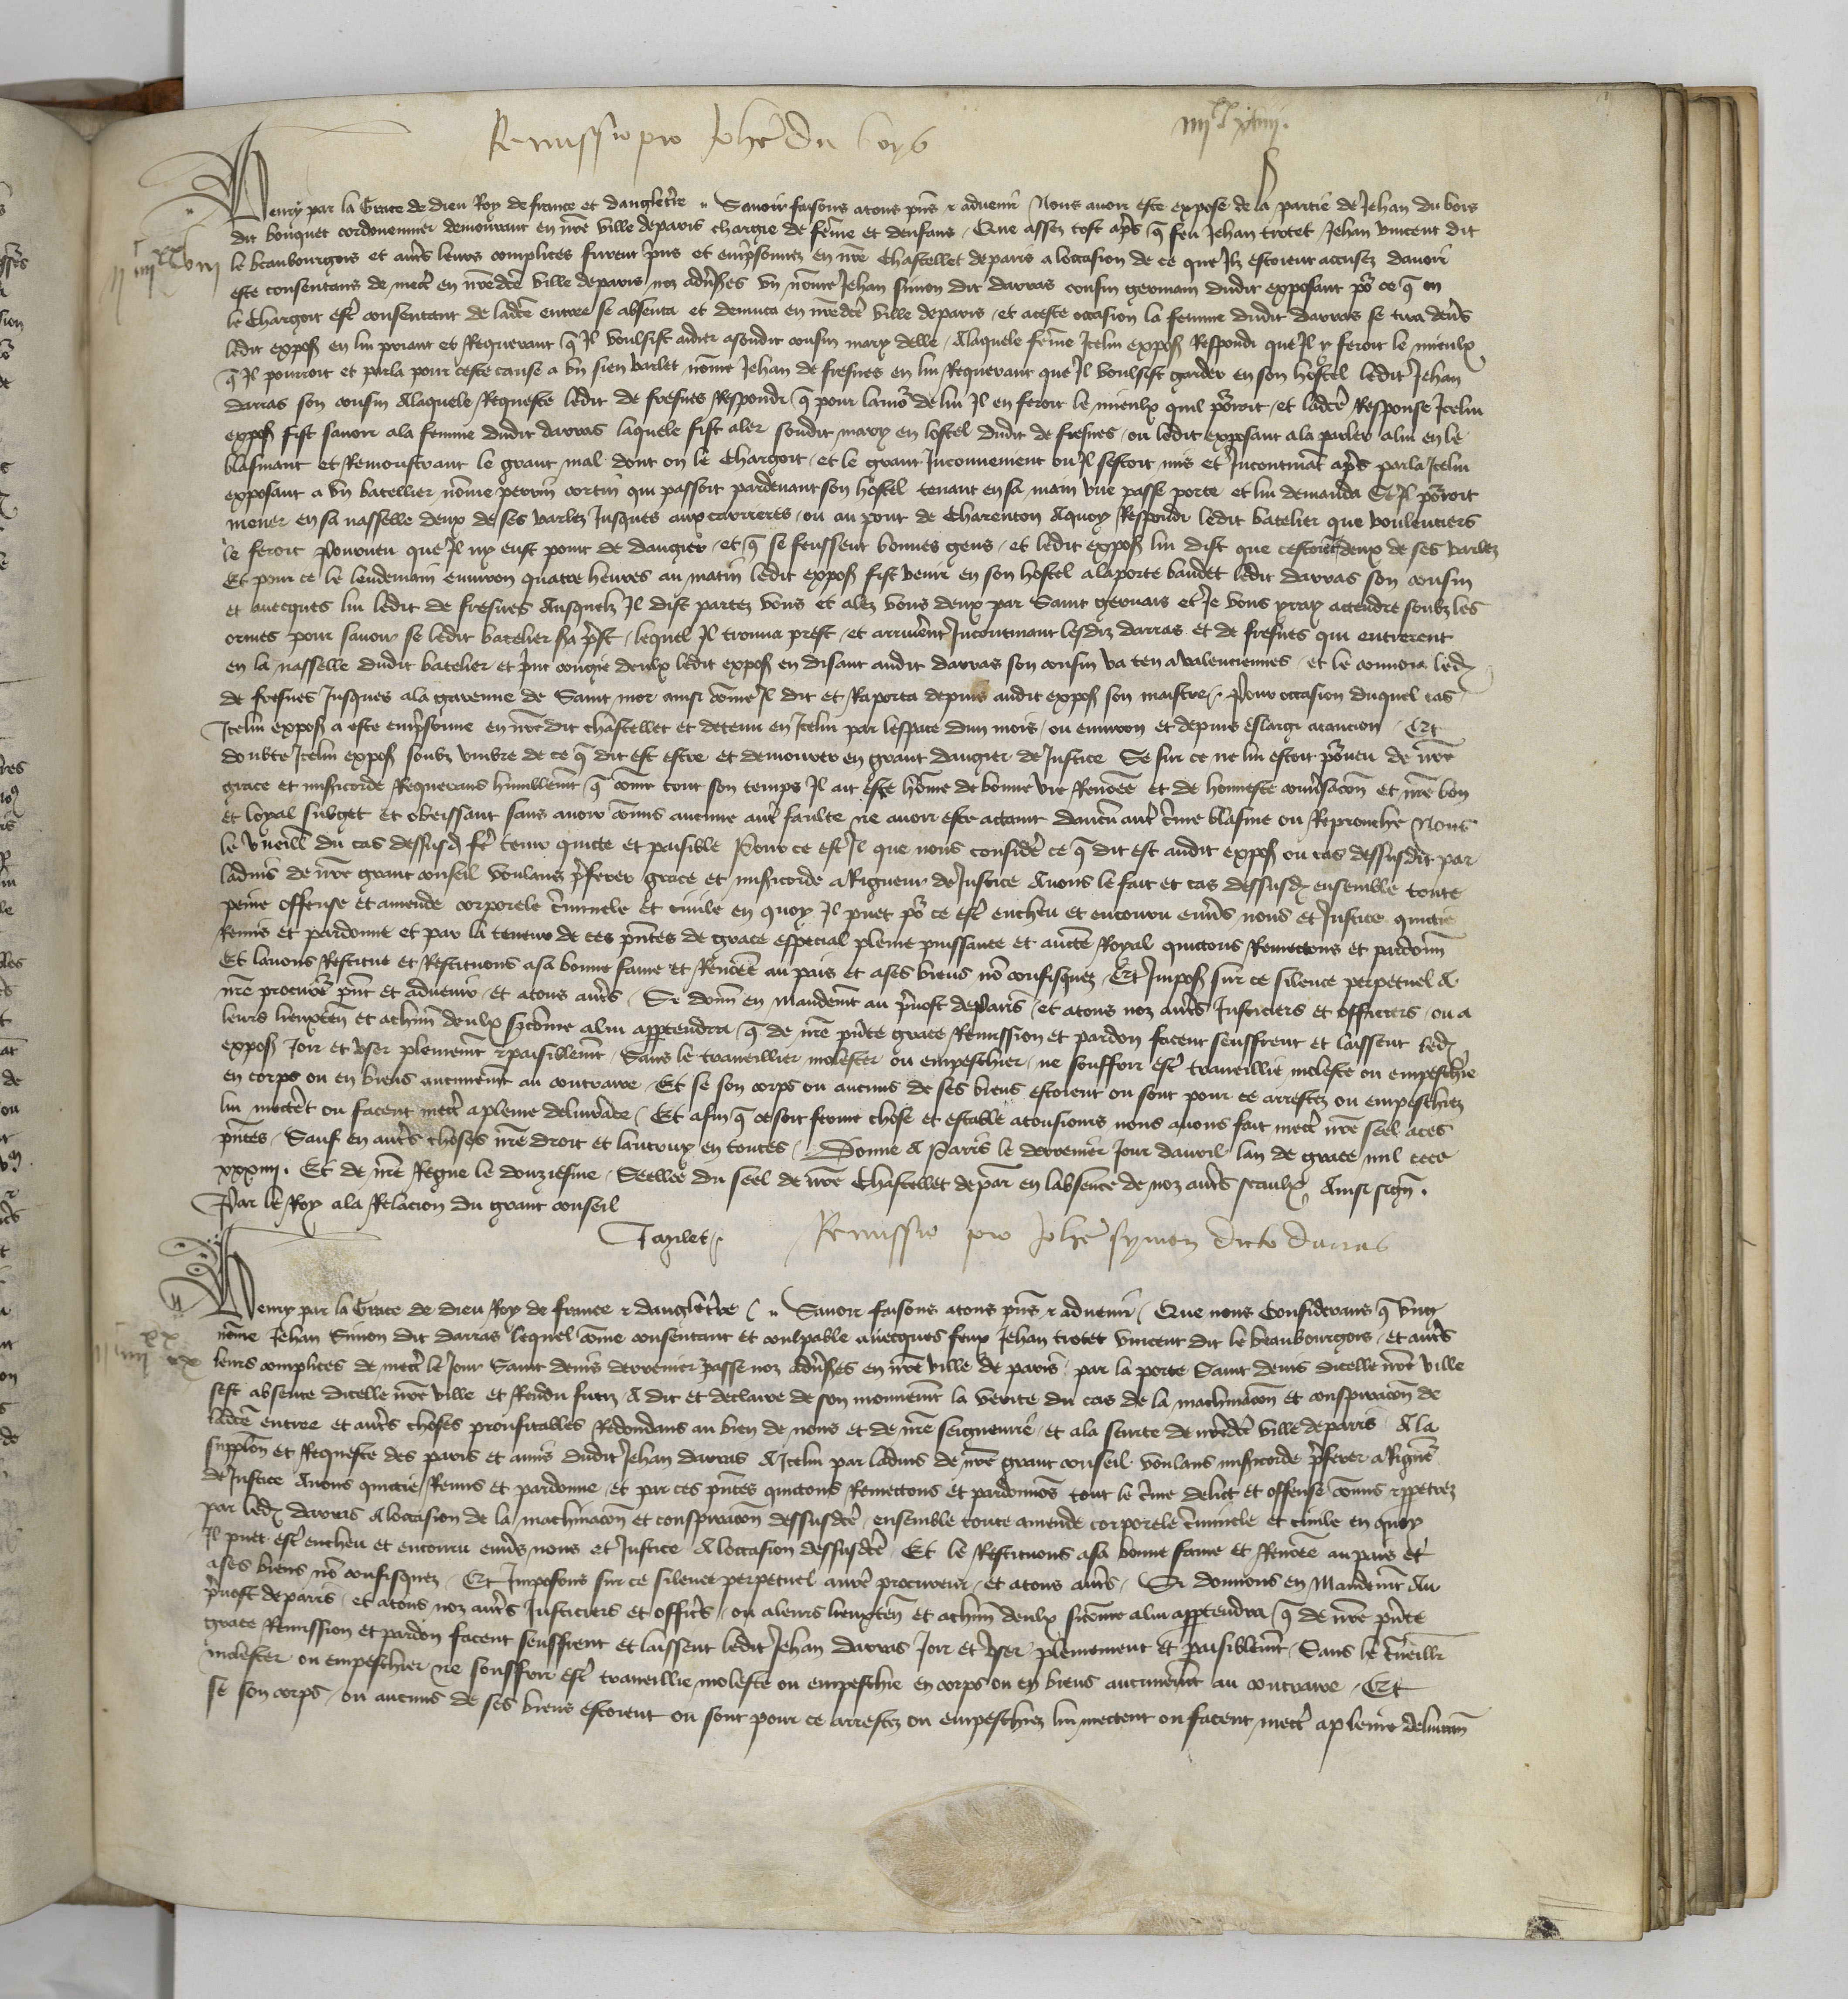 Remissio pro Johe du boys
iiijxx xiiij.
Henry par la Grace de dieu Roy de france et dangletre Savoir faisons atous pns et advenir Nous avoir este expose de la partie de Jehan du bois
dit bouquet cordouennier demourant en nre ville de paris chargie de feme et denfans Que assez tost apres q feu Jehan trotet Jehan vincent dit
le beaubourgois et autrs leurs complices furent prins et emprisonnez en nre Chastellet de paris a loccasion de ce que Ilz estoient accusez davoir
este consentans de mectr en nredce ville de paris noz adversres un nome Jehan simon dit darras cousin germain dudit exposant pour ce q on
le Chargoit estre consentant de ladce entree se absenta et demuca en nredce ville de paris et aceste occasion la femme dudit darras se tira devers
ledit expos en lui priant et Requerant q Il voulsist aidier asondit cousin mary delle Alaquele feme Icelui expos Respondi que Il y feroit le mieulx
q Il pourroit et parla pour ceste cause a un sien varlet nome Jehan de fresnes en lui Requerant que Il voulsist garder en son hostel ledit Jehan
darras son cousin Alaquele Requeste ledit de fresnes Respondi q pour lamour de lui Il en feroit le mieulx quil porroit et ladce Response Icelui
expos fist savoir ala femme dudit darras laquele fist aler sondit mary en lostel dudit de fresnes ou ledit exposant ala parler alui en le
blasmant et Remonstrant le grant mal dont on le Chargoit et le grant Inconvenient ou Il sestoit mis et Incontinat apres parla Icelui
exposant a un batellier nome perrin cortin qui passoit pardevant son hostel tenant en sa main une passe porte et lui demanda Se Il porroit
mener en sa nasselle deux de ses varlez Jusques aux carrieres ou au pont de Charenton Aquoy Respondi ledit batelier que voulentiers
le feroit Pourveu que Il ny eust point de dangier et q se feussent bonnes gens et ledit expos lui dist que cestoient deux de ses varlez
Et pour ce le lendemain environ quatre heures au matin ledit expos fist venir en son hostel alaporte baudet ledit darras son cousin
et avecques lui ledit de fresnes Ausquelz Il dist partez vous et alez vous deux par Saint gervais et Je vous yray attendre soubz les
ormes pour savoir se ledit batelier sera prest lequel Il trouva prest et arriverent Incontinant lesdiz darras et de fresnes qui entrerent
en la nasselle dudit batelier et print congie deulx ledit expos en disant audit darras son cousin va ten a valenciennes et le convoia led
de fresnes Jusques ala garenne de Saint mor ainsi come Il dit et Raporta depuis audit expos son maistre Pour occasion duquel cas
Icelui expos a este emprisonne en nredit chastellet et detenu en Icelui par lespace dun mois ou environ et depuis eslargi acaucion Et
doubte Icelui expos soubz umbre de ce q dit est estre et demourer en grant dangier de Justice Se sur ce ne lui estoit pourveu de nre
grace et misericorde Requerans humblemt q come tout son temps Il ait este home de bonne vie Renomee et de honneste conversacon et nre bon
et loyal subget et obeissant sans avoir comis aucune autre faulte ne avoir este actaint daucun autre crime blasme ou Reprouche Nous
le vueill du cas dessusd fe tenir quicte et paisible Pour ce est Il que nous considere ce q dit est audit expos ou cas dessusdit par
ladvis de nre grant conseil Voulans preferer grace et misericorde a Rigueur de Justice Avons le fait et cas dessusd ensemble toute
peine offense et amende corporele criminele et civile en quoy Il puet pour ce estre encheu et encouru envers nous et Justice quictie
Remis et pardonne et par la teneur de ces pntes de grace especial pleine puissance et aucte Royal quictons Remectons et pardonn
Et lavons Restitue et Restituons asa bonne fame et Renomee au pais et ases biens no confisquez Et Impos sur ce silence perpetuel a
nre procureur pnt et advenir et atous autrs Si donn en mandemt au prevost de Paris et atous noz autrs Justiciers et officiers ou a
leurs lieuxten et achun deulx sicome alui appartendra q de nre pnte grace Remission et pardon facent seuffrent et laissent led
expos Joir et user plenemt et paisiblemt Sans le traveillier molester ou empeschier ne souffrir estre traveillie moleste ou empeschie
en corps ou en biens aucunemt au contraire Et se son corps ou aucuns de ses biens estoient ou sont pour ce arrestez ou empeschiez
lui mectet ou facent mectr apleine delivrace Et afin q ce soit ferme chose et estable atousiours nous avons fait mectr nre seel aces
pntes Sauf en autrs choses nre droit et lautruy en toutes Donne A Paris le derrenier Jour davril lan de grace mil cccc
xxxiiij. Et de nre Regne le douziesme Seellee du seel de nre Chastellet de par en labsence de noz autrs seaulx Ainsi sign.
Par le Roy ala Relacion du grant conseil
Janlet
Remissio pro Johe symon dicto darras
Henry par la Grace de dieu Roy de france et dangletrre Savoir faisons atous pns et advenir Que nous Considerans q ung
nome Jehan Simon dit darras lequel come consentant et coulpable avecques feux Jehan trotet vincent dit le beaubourgois et autrs
leurs complices de mectr le Jour Saint denis derrenier passe noz adversres en nre ville de paris par la porte Saint denis dicelle nre ville
sest absente dicelle nre ville et Rendu fuitiz A dit et declaire de son mouvemt la verite du cas de la machinacon et conspiracon de
ladce entree et autrs choses proufitables Redondans au bien de nous et de nre seigneurie et ala seurte de nredce ville de paris A la
supplon et Requeste des parens et amis dudit Jehan darras A Icelui par ladvis de nre grant conseil voulans misericorde preferer a Rigueur
de Justice Avons quictie Remis et pardonne et par ces pntes quictons Remectons et pardonnos tout le crime delict et offense comis et perpetrez
par led darras A loccasion de la machinacon et conspiracon dessusdce ensemble toute amende corporele criminele et civile en quoy
Il puet estre encheu et encouru envers nous et Justice A loccasion dessusdce Et le Restituons asa bonne fame et Renomee au pais et
ases biens no confisquez Et Imposons sur ce silence perpetuel anre procureur et atous autrs Si donnons en Mandemt Au
prevost de paris et atous noz autrs Justiciers et officiers ou aleurs lieuxten et achun deulx sicome alui appartendra q de nre pnte
grace Remission et pardon facent seuffrent et laissent ledit Jehan darras Joir et user plenement et paisiblemt Sans le traveillr
molester ou empeschier ne souffrir estre traveillie moleste ou empeschie en corps ou en biens aucunemt au contraire Et
se son corps ou aucuns de ses biens estoient ou sont pour ce arrestez ou empeschiez lui mectent ou facent mectr apleine delivran